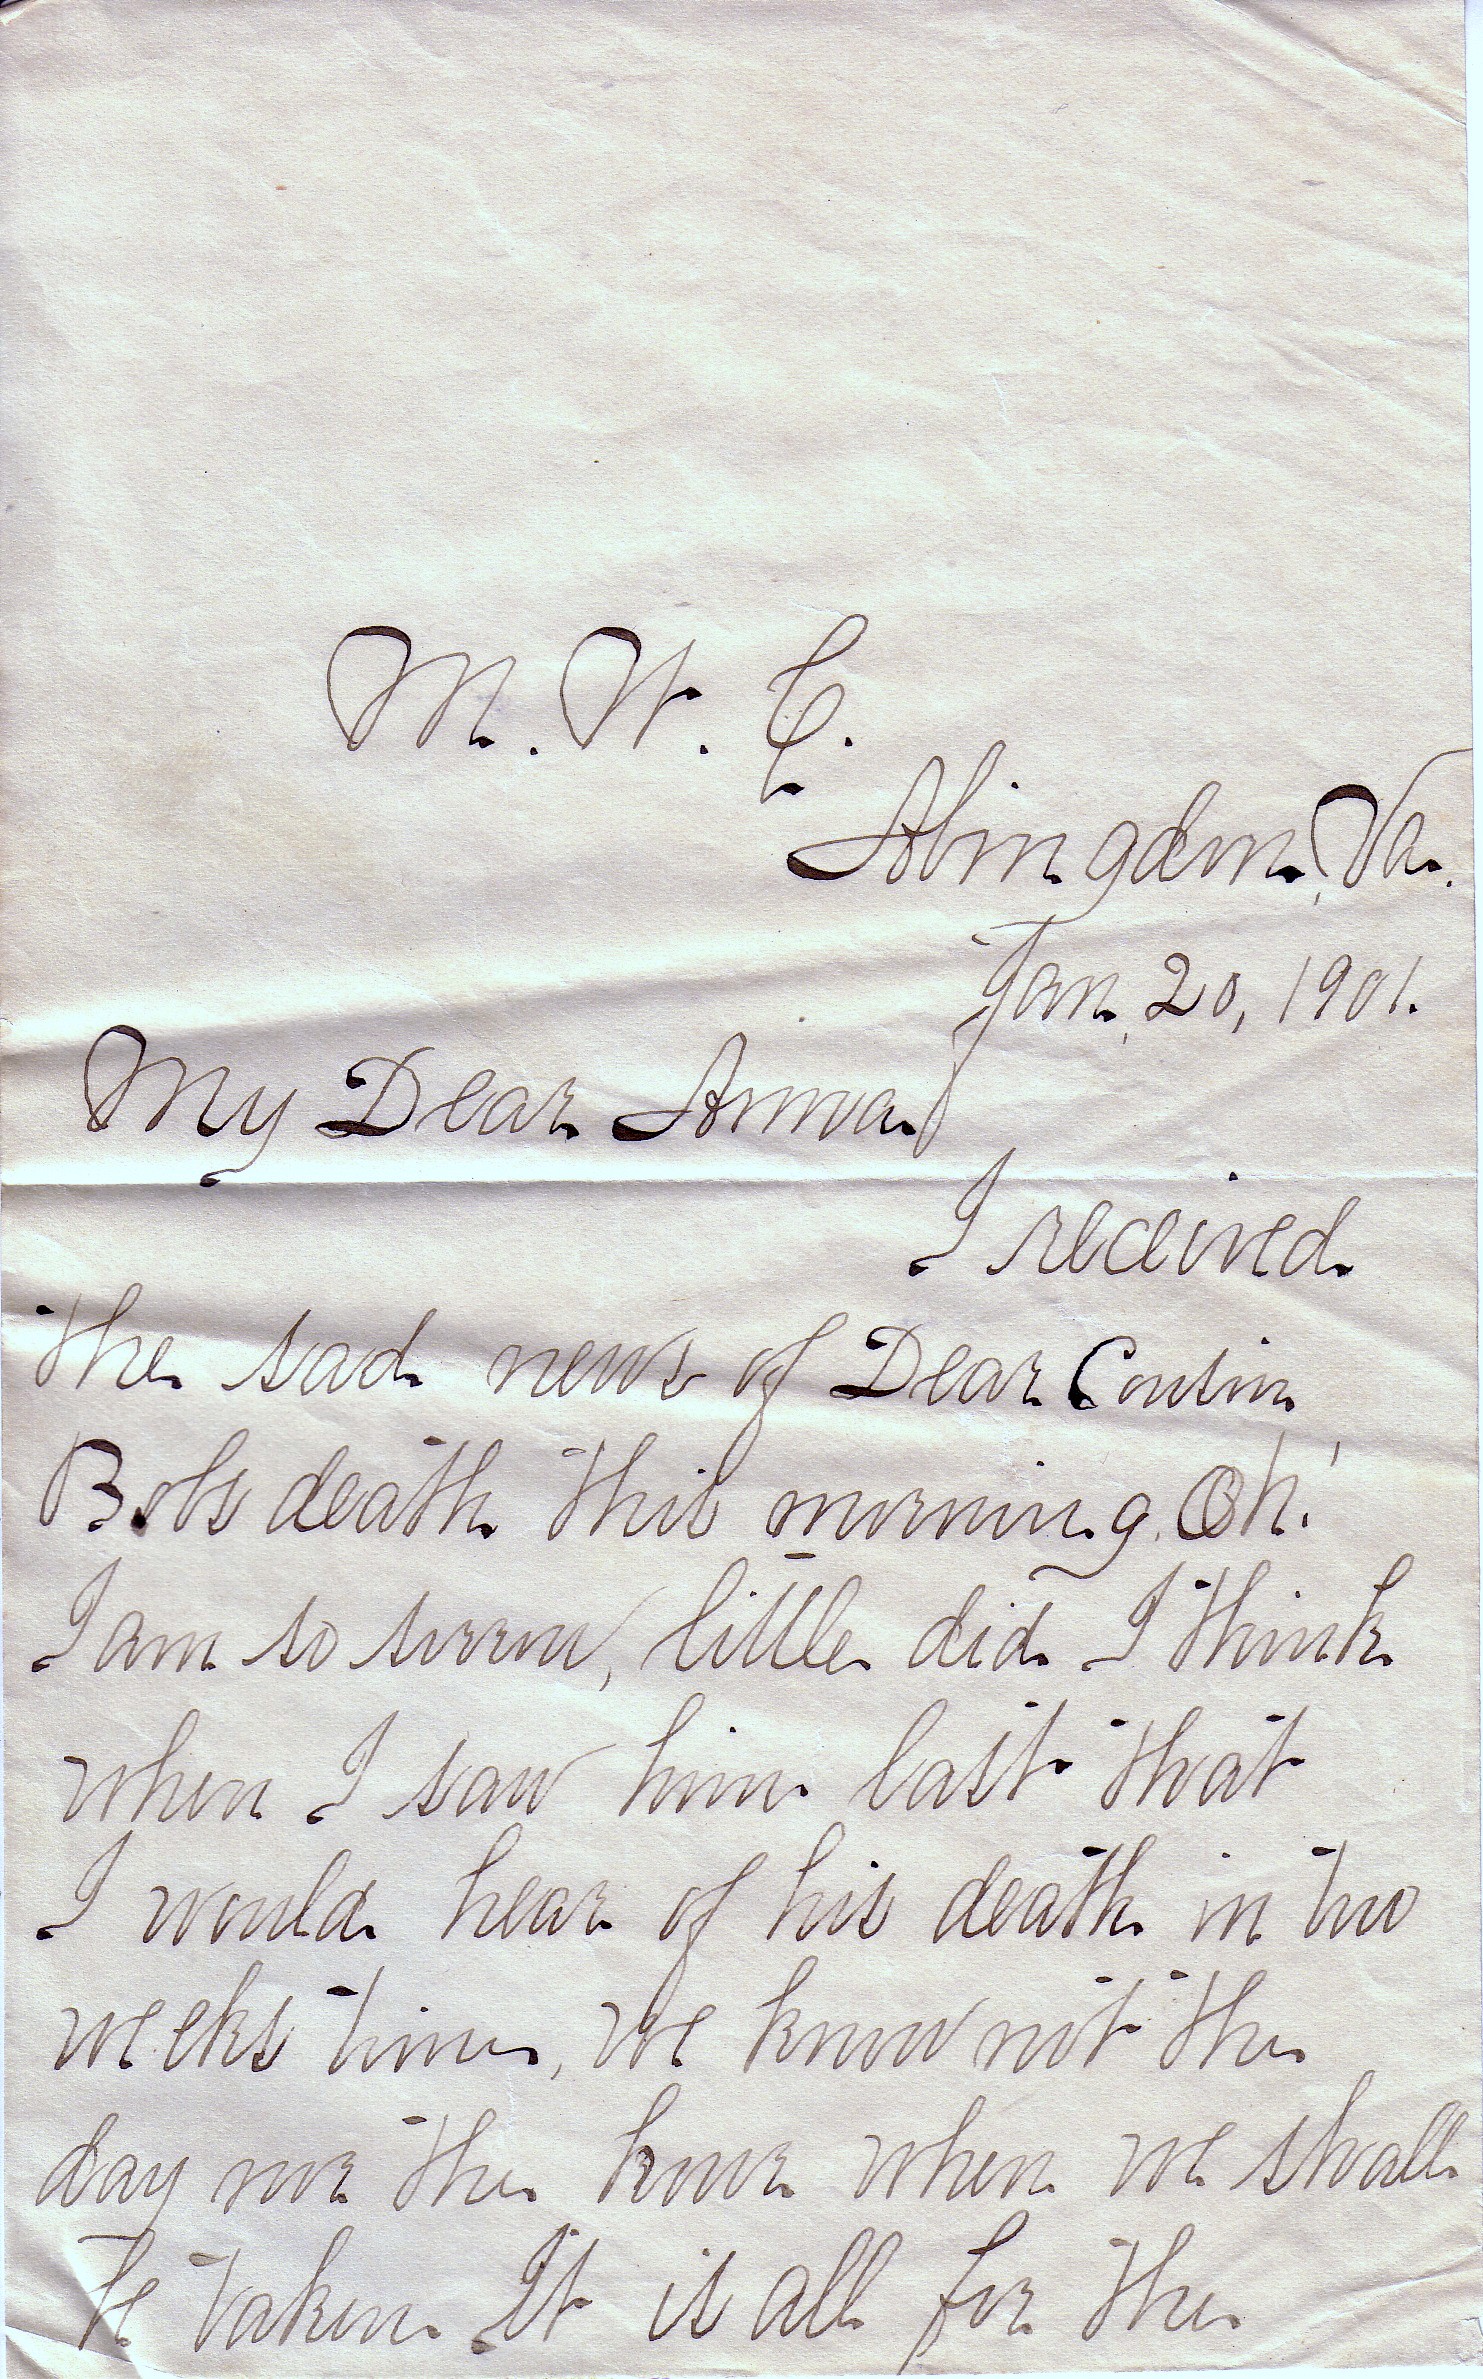 M. W. C.
Abingdon, Va.
Jan, 20, 1901.
My Dear Anna
I received
the sad news of Dear Cousin
Bobs death this morning. Oh!
I am so sorrow, little did I think
when I saw him last that
I would hear of his death in two
weeks time, we know not the
day nor the hour when we shall
be taken. It is all for the